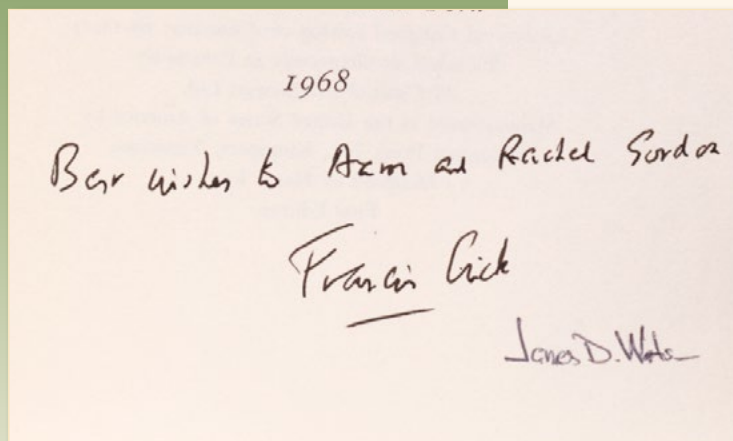 1968
Best wishes to Aaron and Rachel Gordon
Francis Crick
James D. Watson